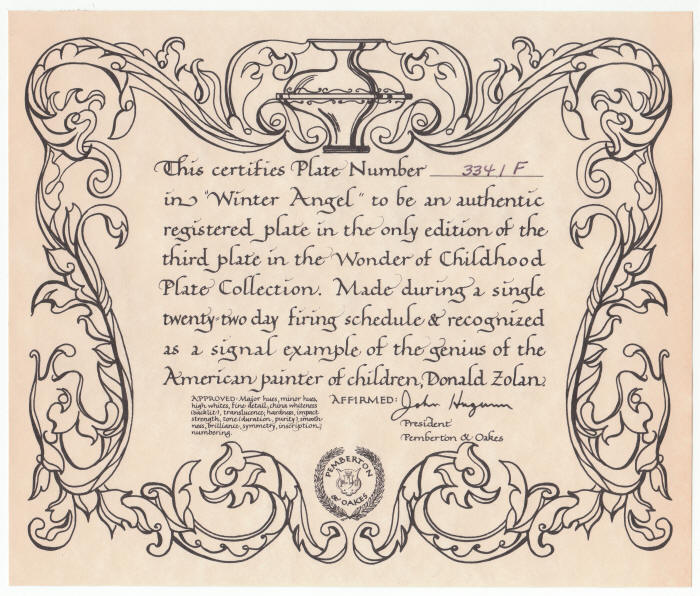 This certifies Plate Number 3341F
in "Winter Angel" to be an authentic
registered plate in the only edition of the
third plate in the Wonder of Childhood
Plate Collection. Made during a single
twenty-two day firing schedule & recognized
as a signal example of the genius of the
American painter of children, Donald Zolan.
APPROVED: Major hues, minor hues,
high whites, fine detail, china whiteness
(backlit), translucence, hardness, impact
strength, tone (duration, purity) smooth-
ness, brilliance, symmetry, inscription/
numbering.
AFFIRMED: John
President
Pemberton & Oakes
PEMBERTON
& OAKES